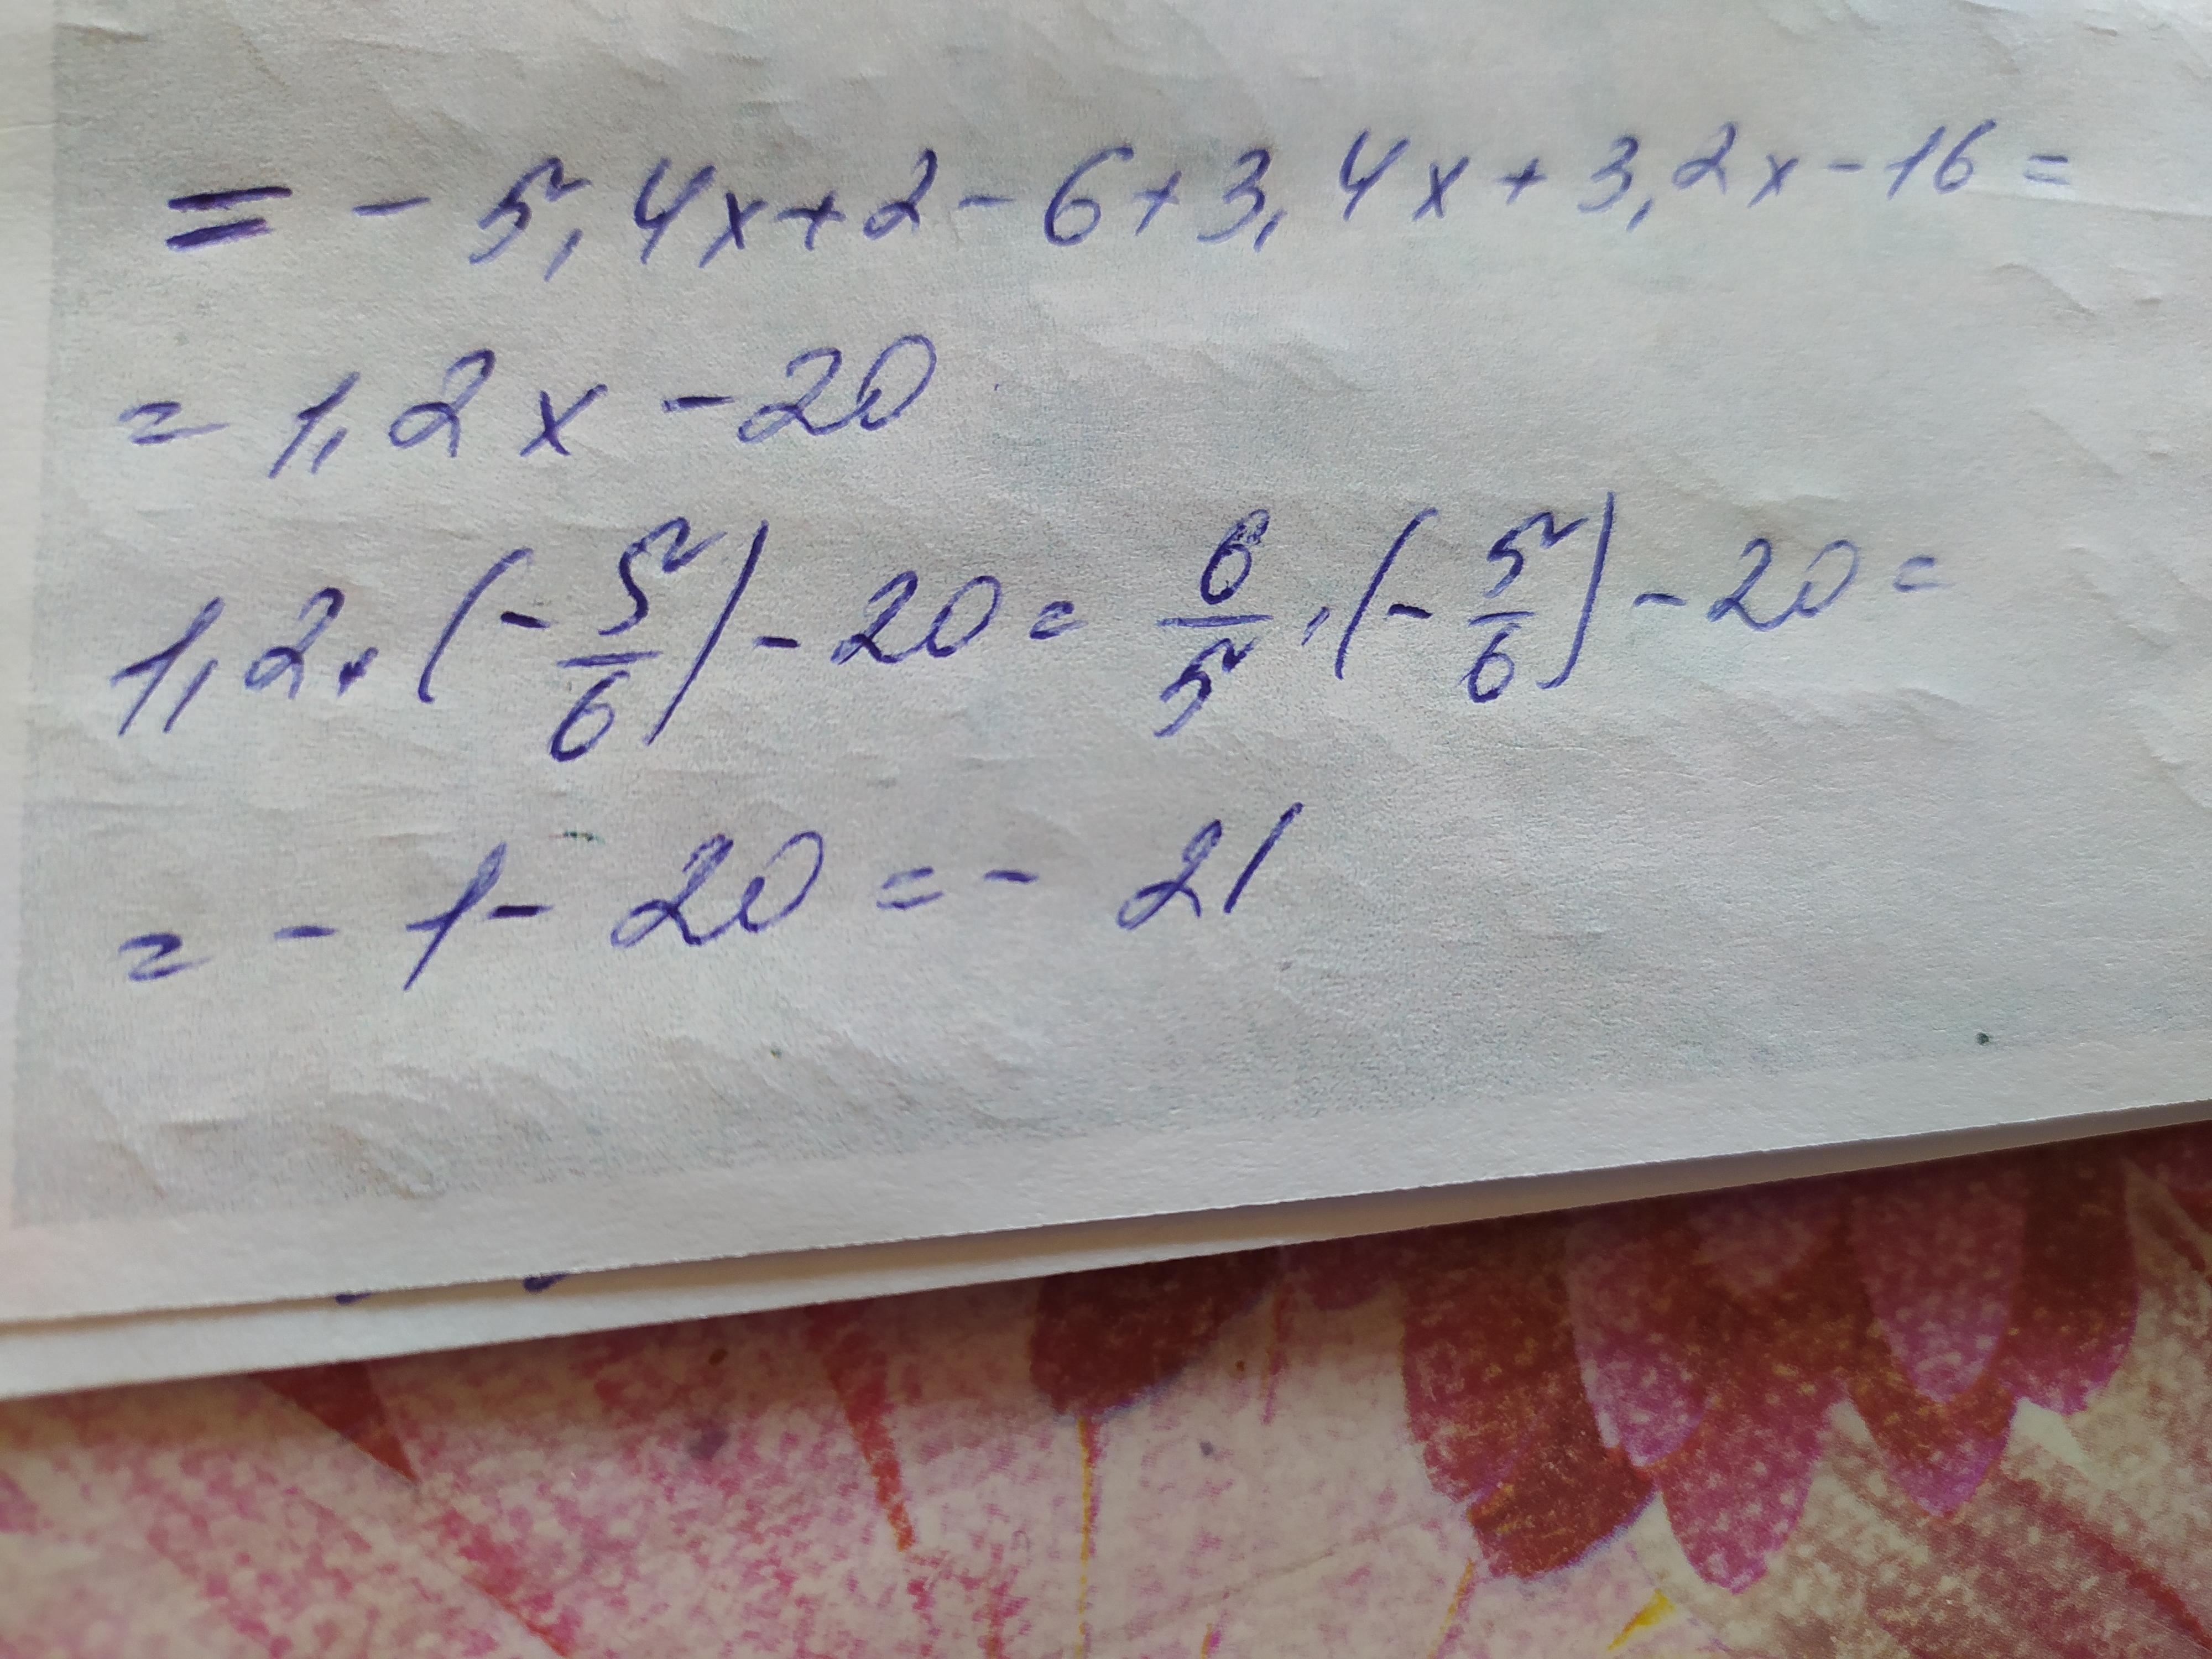 = - 5,4x + 2 - 6 + 3,4x + 3,2x - 16 =
= 1,2x - 20
1,2 · (-5/6) - 20 = 6/5 · (-5/6) - 20 =
= - 1 - 20 = - 21